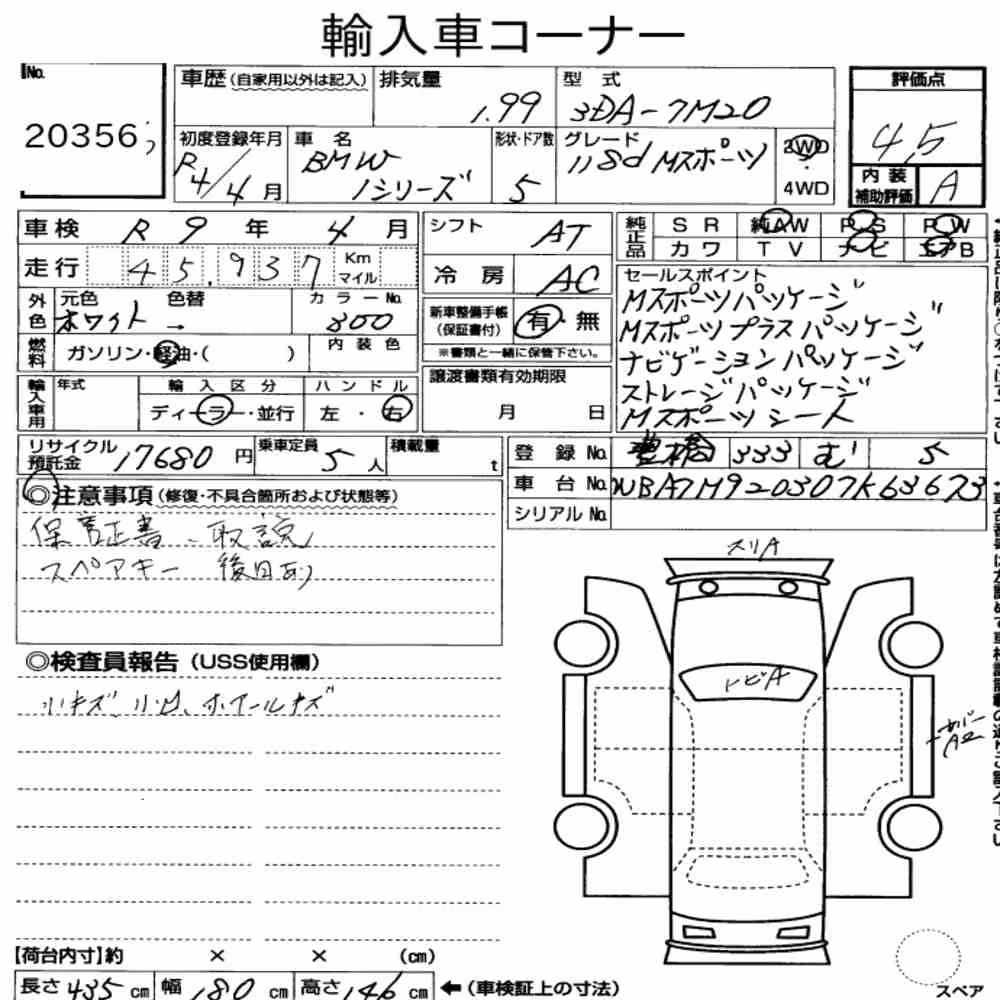 輸入車コーナー
No.
20356
車歴(自家用以外は記入)
排気量
1.99
型式
3DA-7M20
評価点
4.5
内装補助評価
A
初度登録年月
R4/4月
車名
BMW
1シリーズ
形状・ドア数
5
グレード
118d Mスポーツ
2WD・4WD
車検 R 9 年 4 月
走行 45,937 Km マイル
シフト AT
冷房 AC
純正品 SR 純AW PS PW
カワ TV ナビ エアB
外色 元色 ホワイト 色替 → カラーNo. 300
燃料 ガソリン・軽油・( )
内装色
新車整備手帳(保証書付) 有・無
※書類と一緒に保管下さい。
譲渡書類有効期限
月 日
セールスポイント
Mスポーツパッケージ
Mスポーツプラスパッケージ
ナビゲーションパッケージ
ストレージパッケージ
Mスポーツシート
輸入車用 年式
輸入区分 ディーラー・並行
ハンドル 左・右
リサイクル預託金 17680円
乗車定員 5人
積載量 t
登録No. 豊橋 333 む 5
車台No. WBA7M920307K63673
シリアルNo.
◎注意事項(修復・不具合箇所および状態等)
保証書、取説
スペアキー 後日あり
◎検査員報告(USS使用欄)
小キズ、小凹、ホイールキズ
スリA
トビA
カバーA2
【荷台内寸】約 × × (cm)
長さ 435 cm 幅 180 cm 高さ 146 cm ←(車検証上の寸法)
スペア